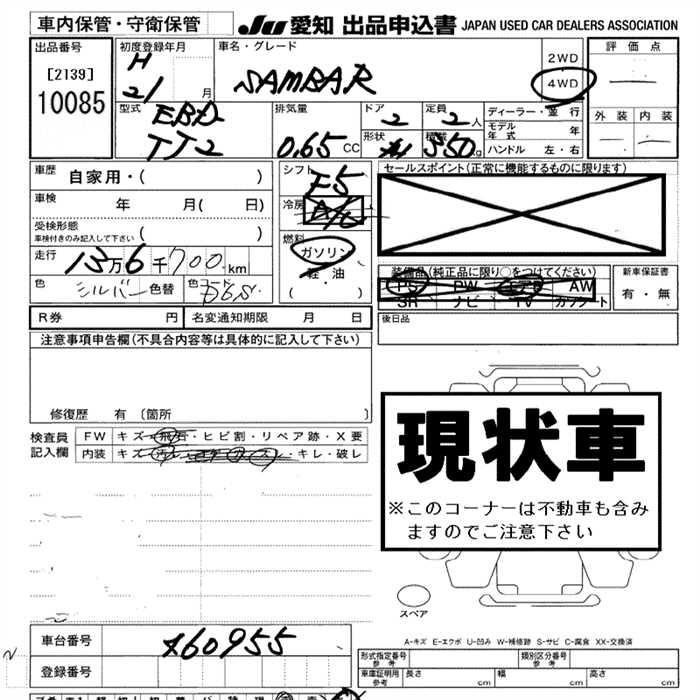 車内保管・守衛保管
JU 愛知 出品申込書 JAPAN USED CAR DEALERS ASSOCIATION
出品番号
[2139]
10085
初度登録年月
H
21 月
車名・グレード
SAMBAR
2WD
4WD
評価点
外装 内装
型式
EBD
TT2
排気量
0.65 CC
ドア
2
定員
2人
形状
積載
350 kg
ディーラー・並行
モデル年式 年
ハンドル 左・右
車歴
自家用・( )
車検 年 月( 日)
受検形態
車検付きのみ記入して下さい ( )
走行
13万6千700km
色 シルバー 色替 色コード D6S
シフト
F5
冷房
A/C
燃料
ガソリン
軽・油
( )
セールスポイント(正常に機能するものに限ります)
装備品(純正品に限り○をつけてください)
PS PW エアB AW
SR ナビ TV カセット
新車保証書
有・無
R券 円 名変通知期限 月 日
後日品
注意事項申告欄(不具合内容等は具体的に記入して下さい)
修復歴 有 〔箇所 〕
検査員
記入欄
FW キズ・飛石・ヒビ割・リペア跡・X要
内装
・キレ・破レ
現状車
※このコーナーは不動車も含み
ますのでご注意下さい
スペア
A-キズ E-エクボ U-凹み W-補修跡 S-サビ C-腐食 XX-交換済
車台番号
160955
登録番号
形式指定番号
参考
類別区分番号
参考
車庫証明用
参考
長さ cm 幅 cm 高さ cm